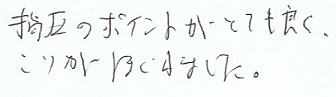 指圧のポイントがとても良く、
こりがほぐれました。